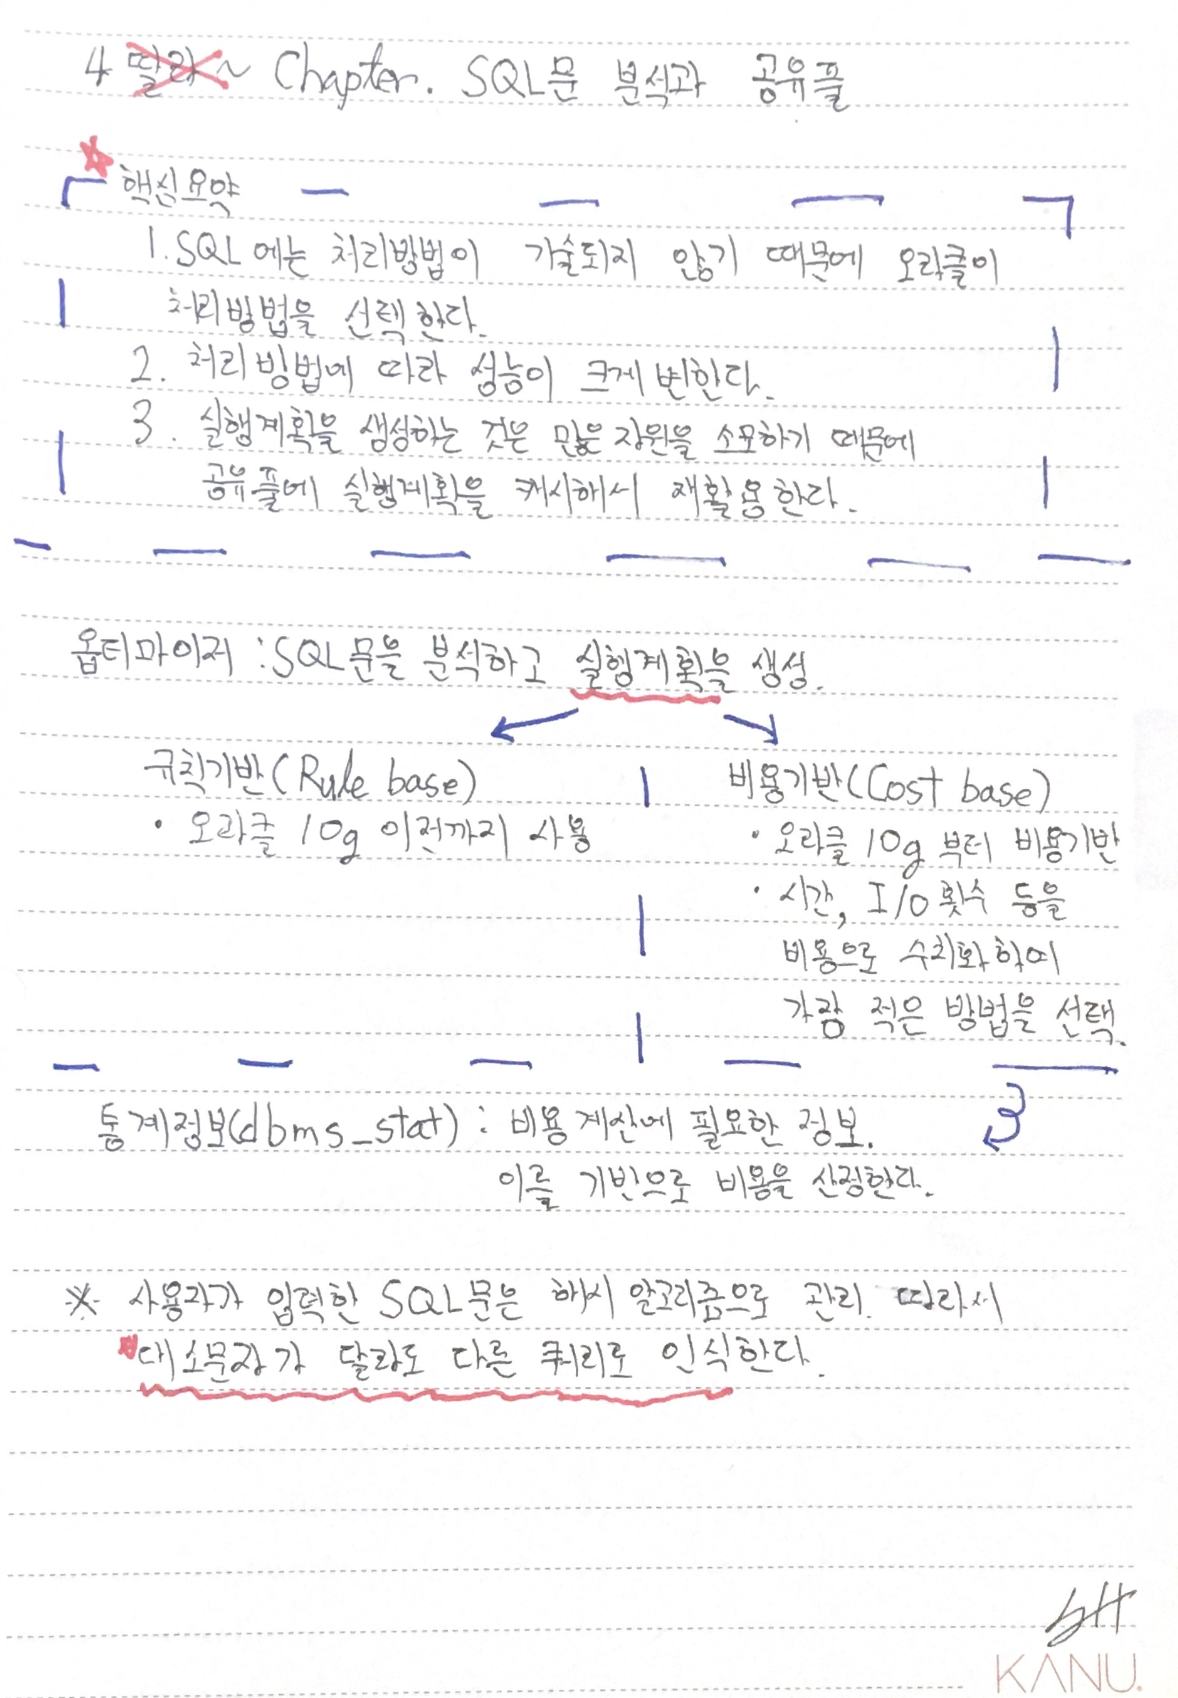 4 딸라~ Chapter. SQL문 분석과 공유풀
핵심요약
1. SQL에는 처리방법이 기술되지 않기 때문에 오라클이
처리방법을 선택한다.
2. 처리방법에 따라 성능이 크게 변한다.
3. 실행계획을 생성하는 것은 많은 자원을 소모하기 때문에
공유풀에 실행계획을 캐시해서 재활용한다.
옵티마이저 : SQL문을 분석하고 실행계획을 생성.
규칙기반(Rule base)
• 오라클 10g 이전까지 사용
비용기반(Cost base)
• 오라클 10g 부터 비용기반
• 시간, I/O 횟수 등을
비용으로 수치화하여
가장 적은 방법을 선택.
통계정보(dbms_stat) : 비용 계산에 필요한 정보.
이를 기반으로 비용을 산정한다.
※ 사용자가 입력한 SQL문은 해시 알고리즘으로 관리. 따라서
대소문자가 달라도 다른 쿼리로 인식한다.
KANU.